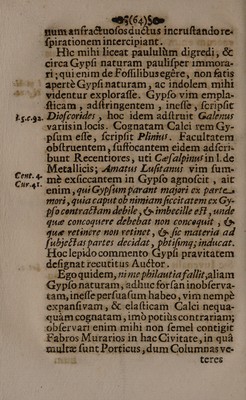 (64)
num anfractuosos ductus incrustando re-
spirationem intercipiant.
Hic mihi liceat paululùm digredi, &
circa Gypsi naturam paulisper immora-
ri; qui enim de Fossilibus egêre, non satis
apertè Gypsi naturam, ac indolem mihi
videntur explorasse. Gypso vim empla-
sticam, adstringentem, inesse, scripsit
l.5.c.92. Dioscorides, hoc idem adstruit Galenus
variis in locis. Cognatam Calci rem Gy-
psum esse, scripsit Plinius. Facultatem
obstruentem, suffocantem eidem adscri-
bunt Recentiores, uti Cæsalpinus in l. de
Metallicis; Amatus Lusitanus vim sum-
Cent. 4.
mè exsiccantem in Gypso agnoscit, ait
Cur. 41.
enim, qui Gypsum parant majori ex parte
mori, quia caput ob nimiam siccitatem ex Gy-
pso contractam debile, & imbecille est, unde
quæ concoquere debebat non concoquit, &
quæ retinere non retinet, & sic materia ad
subjectas partes decidat, phtisimq; inducat.
Hoc lepido commento Gypsi pravitatem
designat recutitus Auctor.
Ego quidem, ni me philautia fallit, aliam
Gypso naturam, adhuc forsan inobserva-
tam, inesse persuasum habeo, vim nempè
expansivam, & elasticam Calci nequa-
quàm cognatam, imò potiùs contrariam;
observari enim mihi non semel contigit
Fabros Murarios in hac Civitate, in quâ
multæ sunt Porticus, dum Columnas ve-
teres